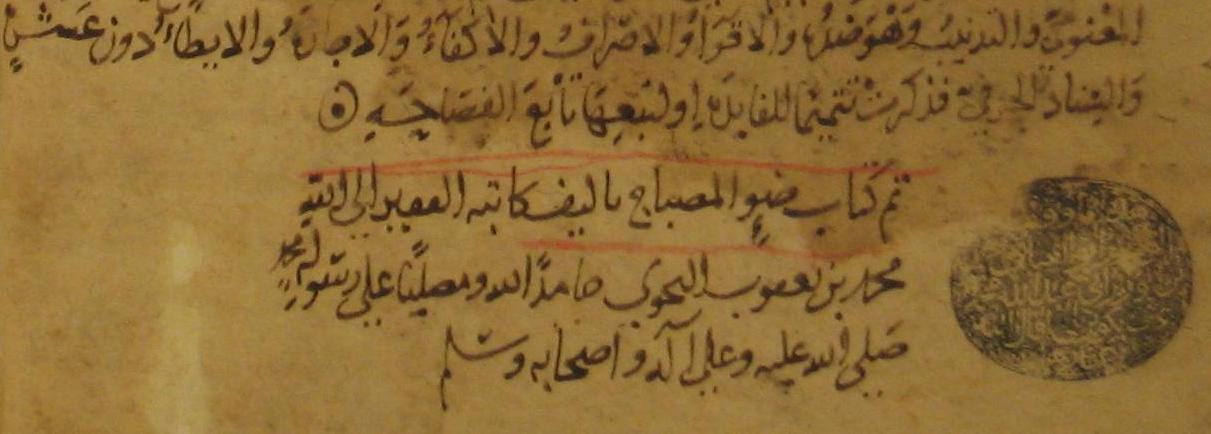 المعنوي والتذنيب وهو ضده والاقواء والاصراف والاكفاء والاجازة والايطاء دون عشر
والعناد الحرفي فذكرت تتميما للفايدة اوليتبعها تابع الفصاحه
تم كتاب ضوء المصباح تاليف كاتبه الفقير الى الله
محمد بن يعقوب النحوي حامدًا لله ومصليًا على رسوله محمد
صلى الله عليه وعلى آله واصحابه وسلم